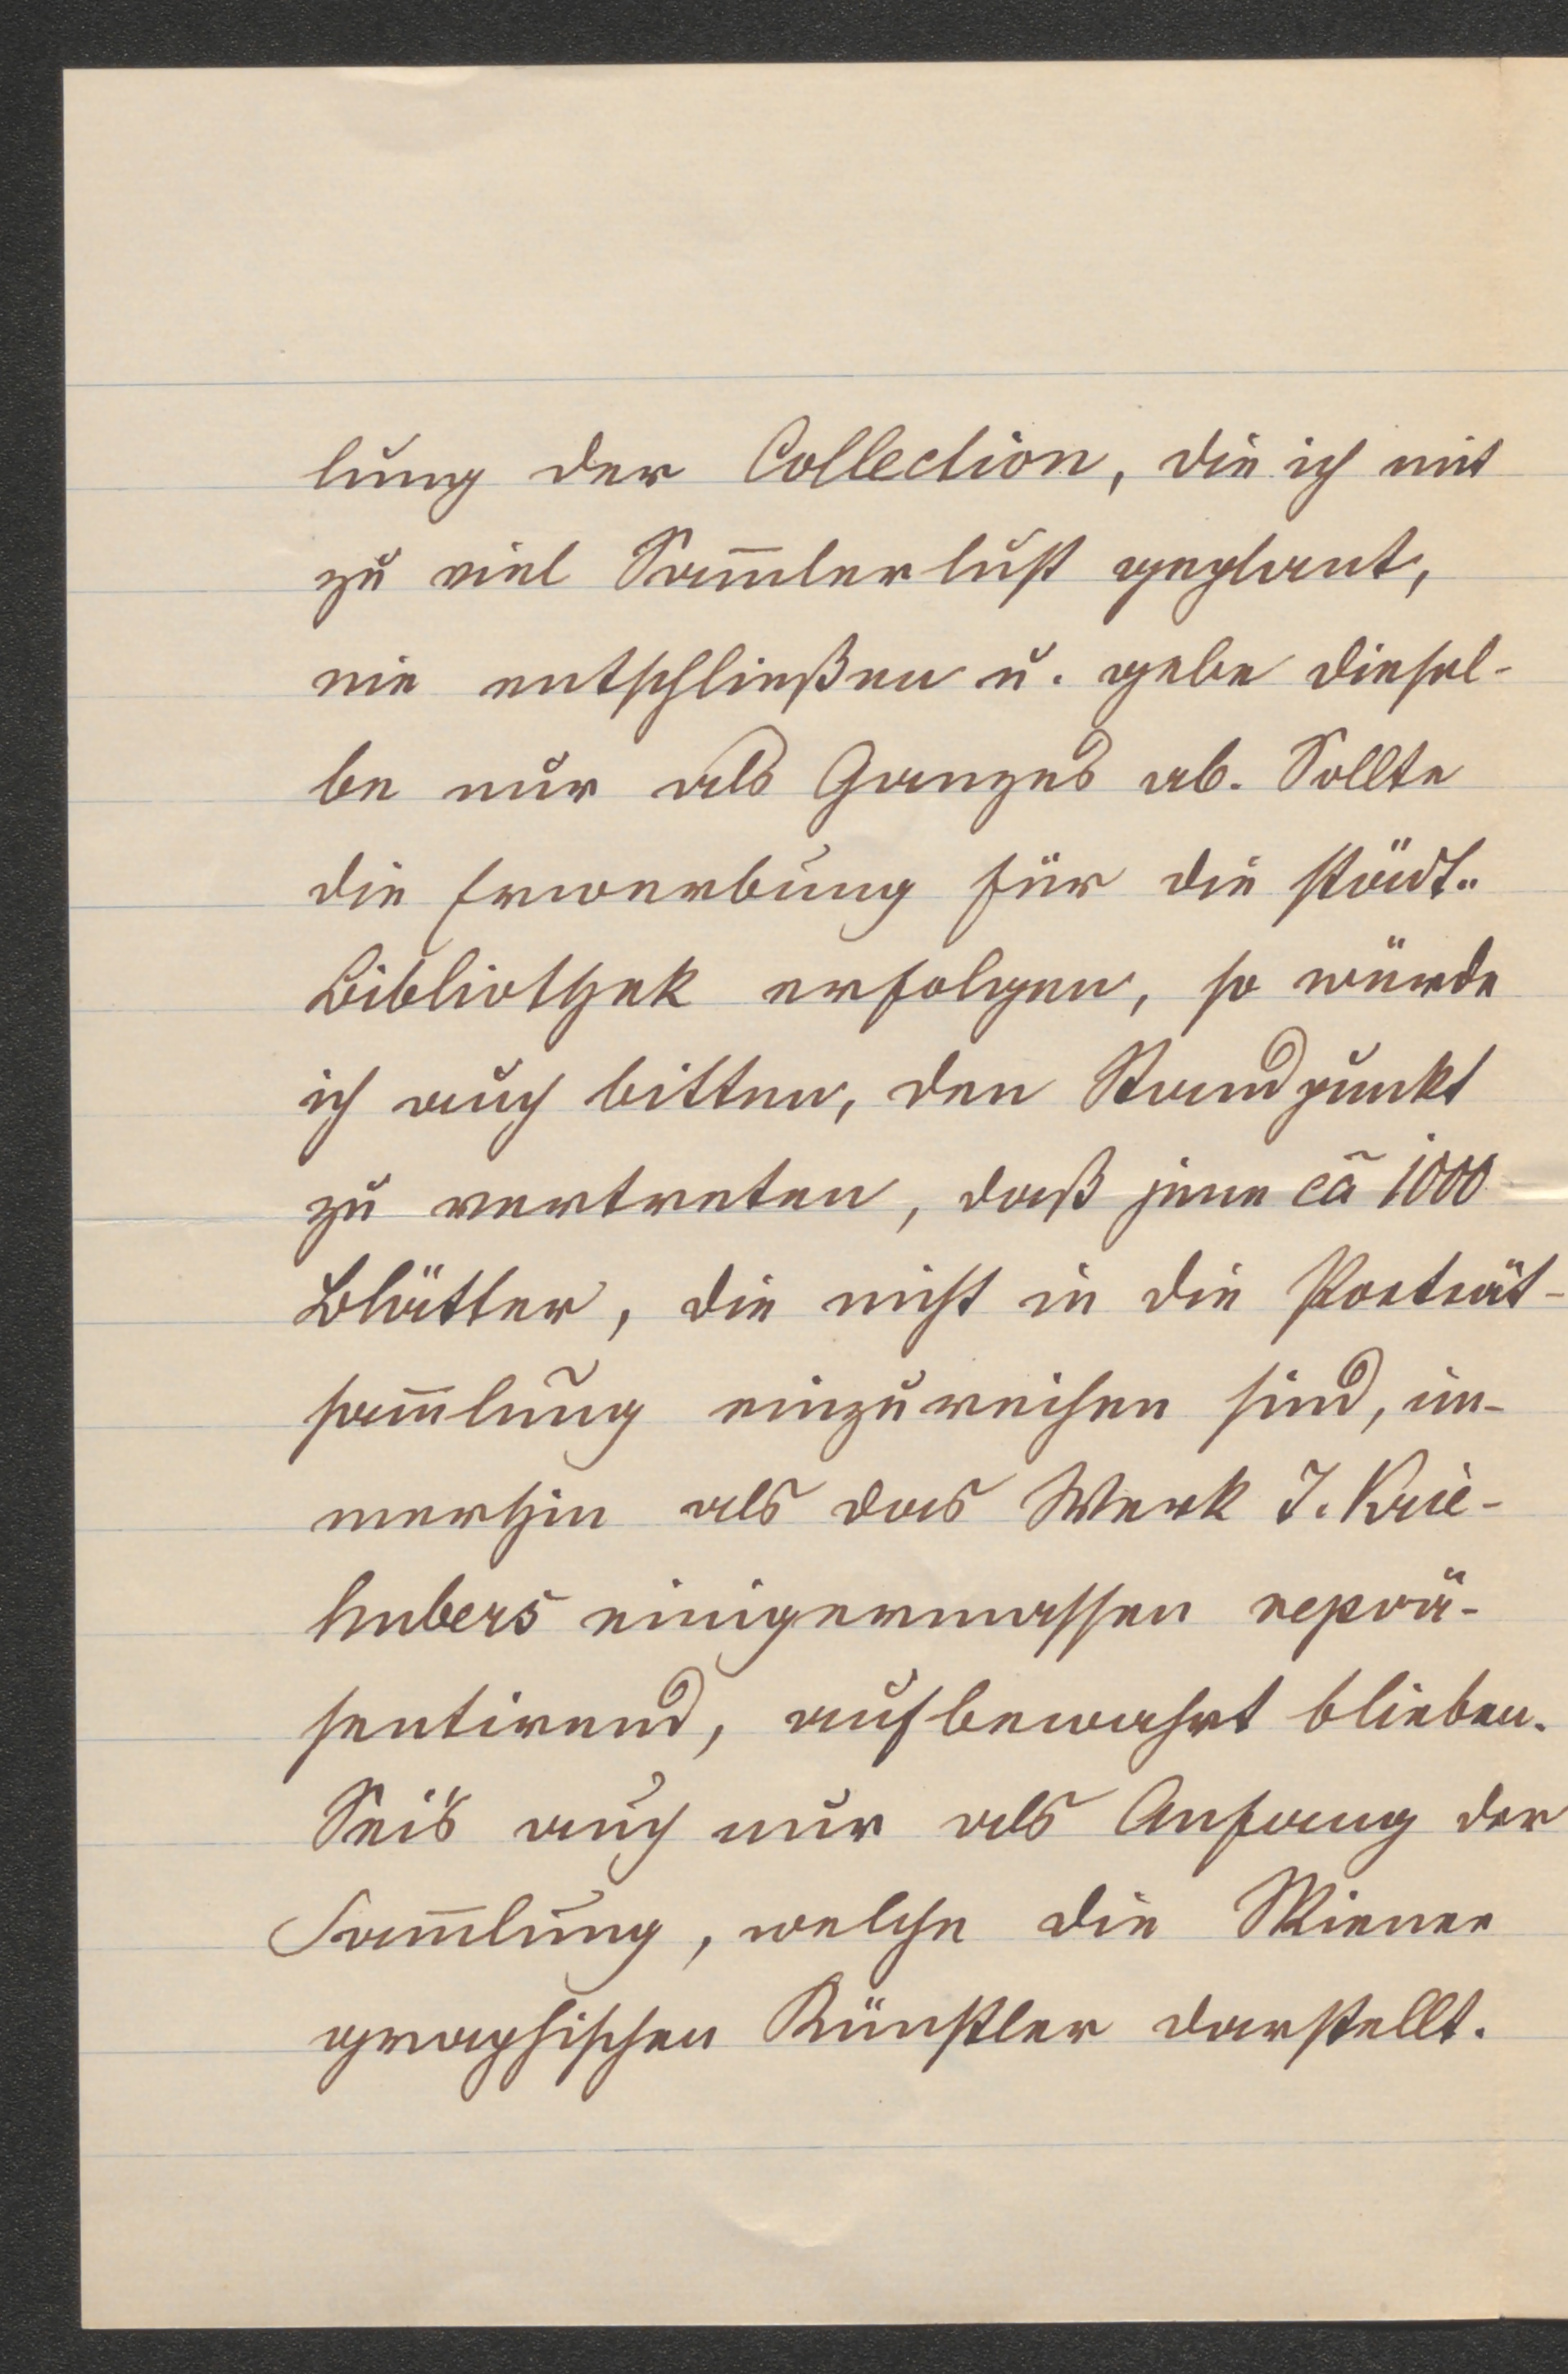 lung der Collection, die ich mit
zu viel Sam̅lerlust geplant,
nie entschließen u. gebe diesel-
be nur als Ganzes ab. Sollte
die Erwerbung für die städt.
Bibliothek erfolgen, so würde
ich auch bitten, den Standpunkt
zu vertreten, daß jene ca 1000
Blätter, die nicht in die Porträt-
sam̅lung einzureihen sind, im-
merhin als das Werk J. Krie-
hubers einigermassen reprä-
sentirend, aufbewahrt blieben.
Sei's auch nur als Anfang der
Sam̅lung, welche die Wiener
graphischen Künstler darstellt.